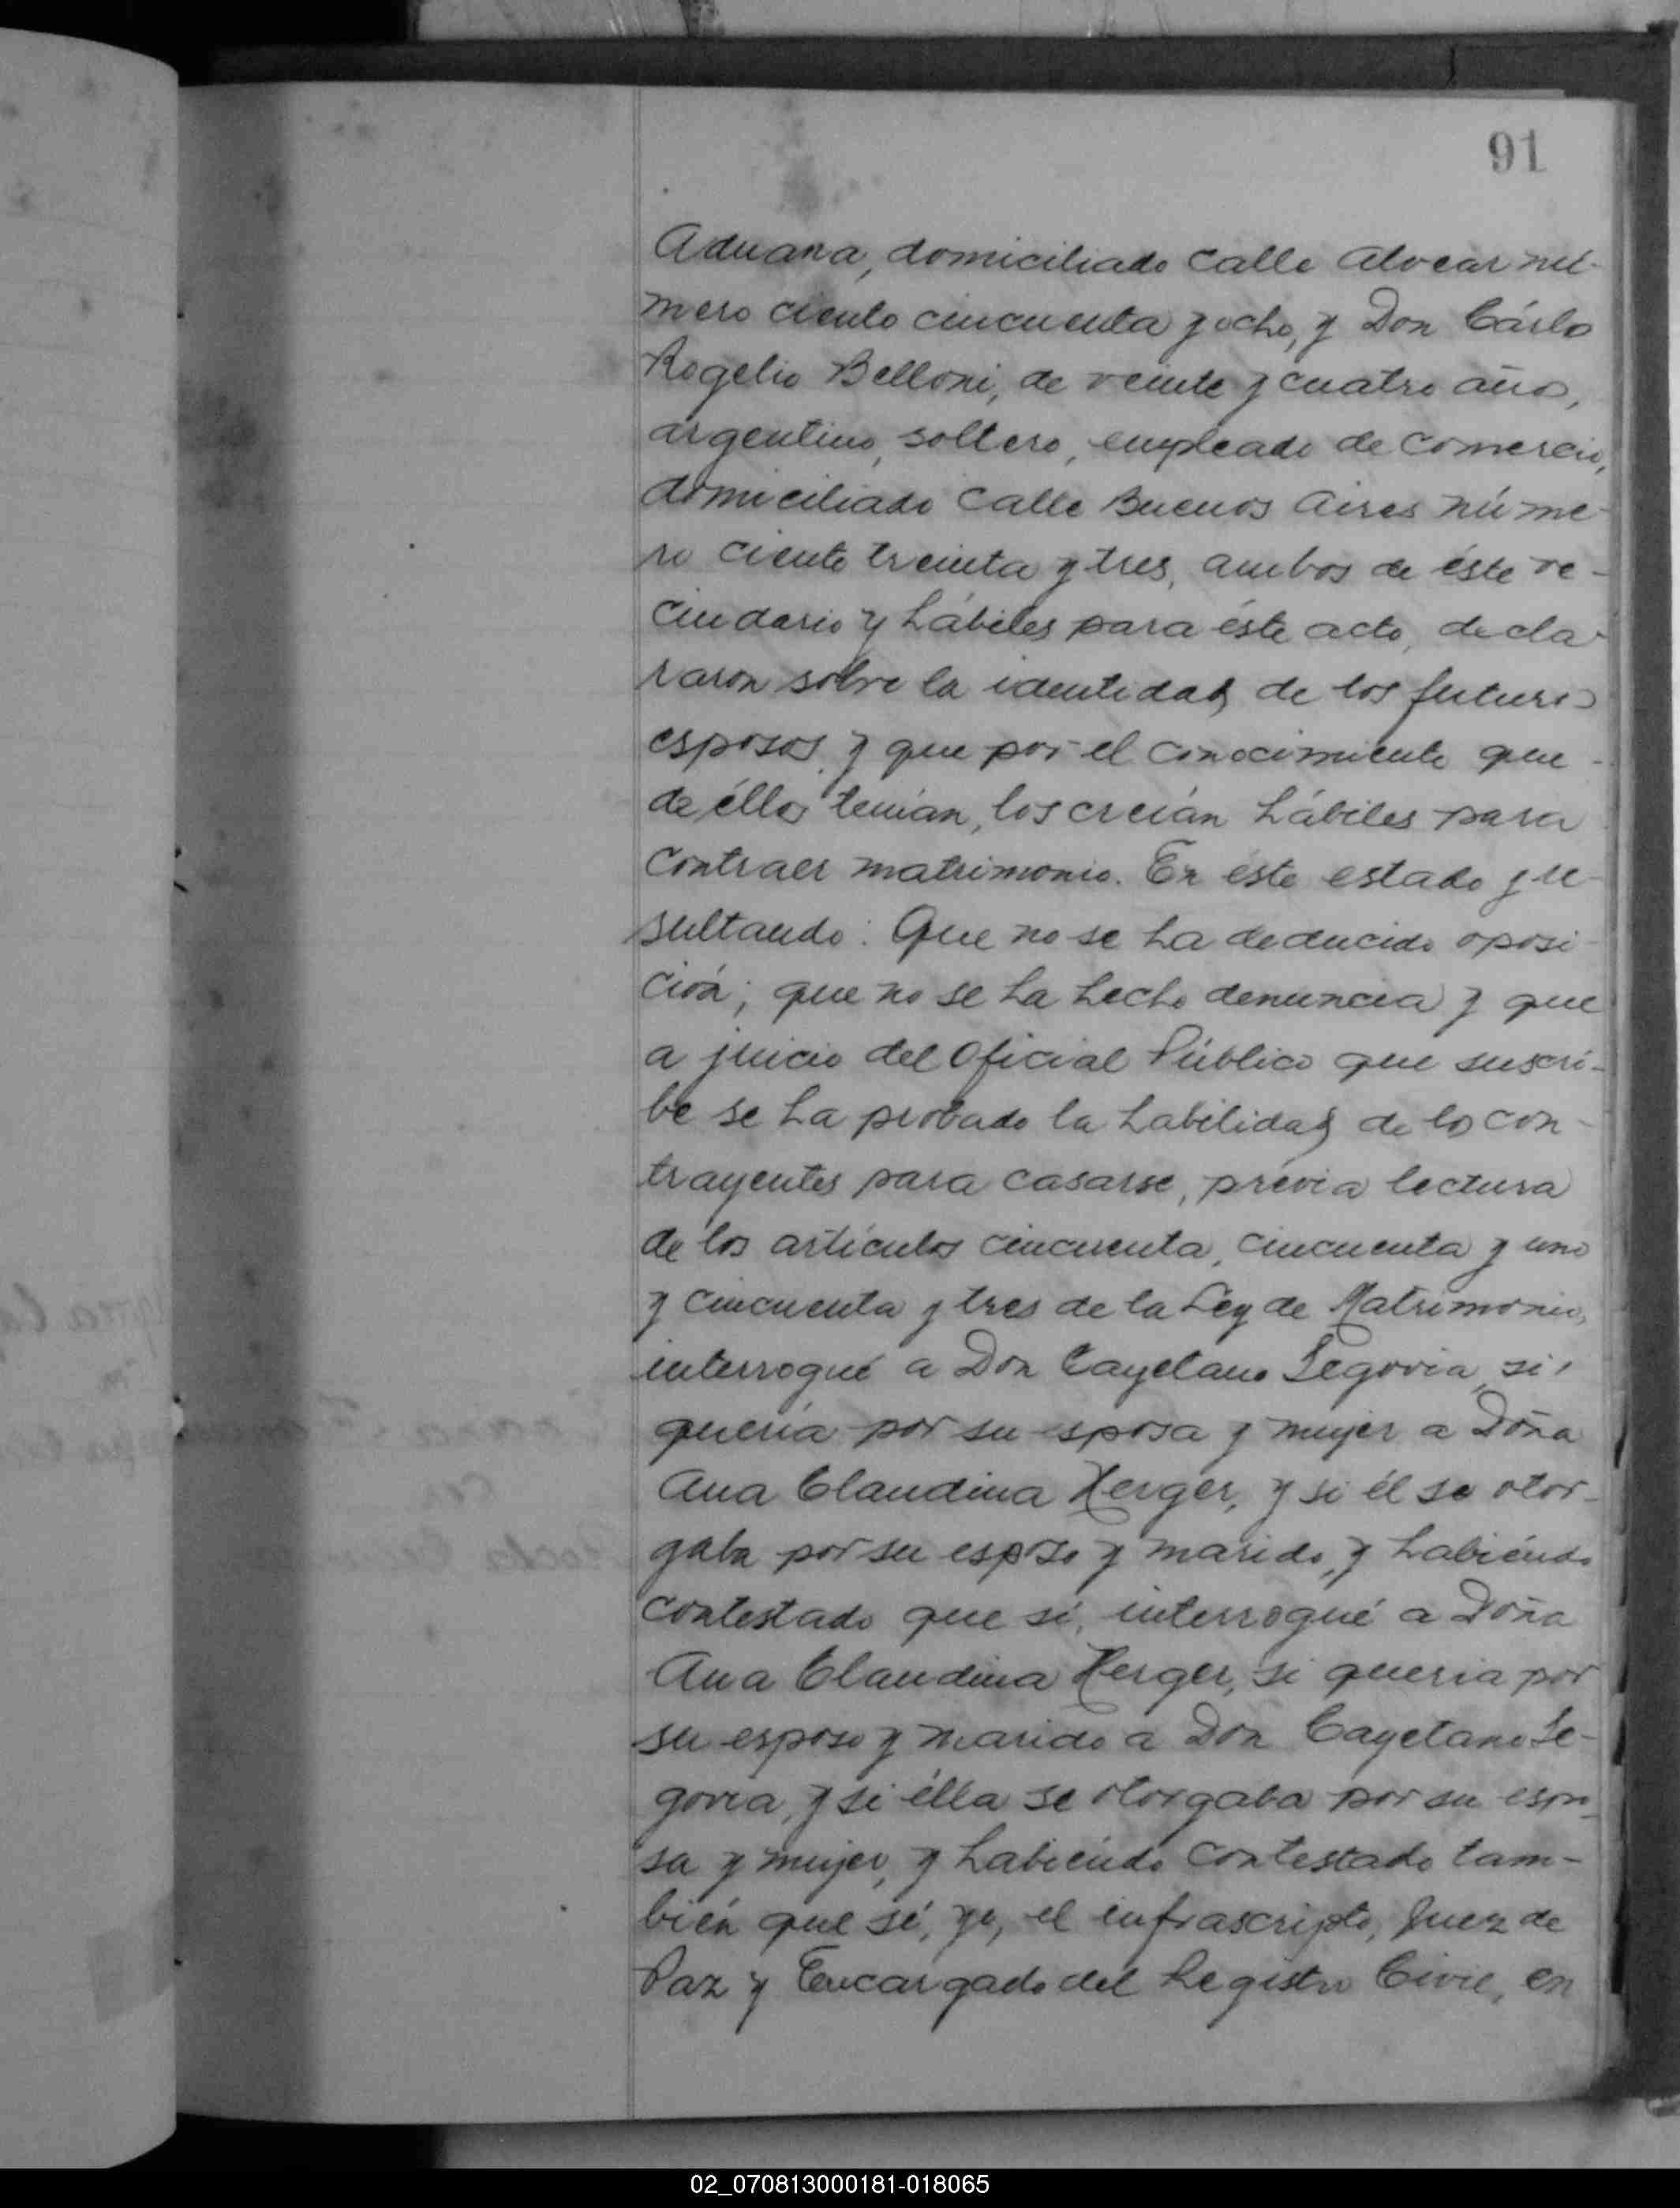 91
Aduana, domiciliado calle Alvear nú-
mero ciento cincuenta y ocho, y Don Cárlos
Rogelio Belloni, de veinte y cuatro años,
argentino, soltero, empleado de comercio,
domiciliado calle Buenos Aires núme-
ro ciento treinta y tres, ambos de éste ve-
cindario y hábiles para éste acto, decla-
raron sobre la identidad de los futuros
esposos y que por el conocimiento que
de éllos tenían, los creían hábiles para
contraer matrimonio. En éste estado y re-
sultando: Que no se ha deducido oposi-
ción; que no se ha hecho denuncia y que
a juicio del Oficial Público que suscri-
be se ha probado la habilidad de los con-
trayentes para casarse, prévia lectura
de los artículos cincuenta, cincuenta y uno
y cincuenta y tres de la Ley de Matrimonio,
interrogué a Don Cayetano Segovia, si
quería por su esposa y mujer a Doña
Ana Claudina Herger, y si él se otor-
gaba por su esposo y marido, y habiéndo
contestado que sí, interrogué a Doña
Ana Claudina Herger, si queria por
su esposo y marido a Don Cayetano Se-
govia, y si élla se otorgaba por su espo-
sa y mujer, y habiéndo contestado tam-
bién que sí, yo, el infrascripto, Juez de
Paz y Encargado del Registro Civil, en
02_070813000181-018065